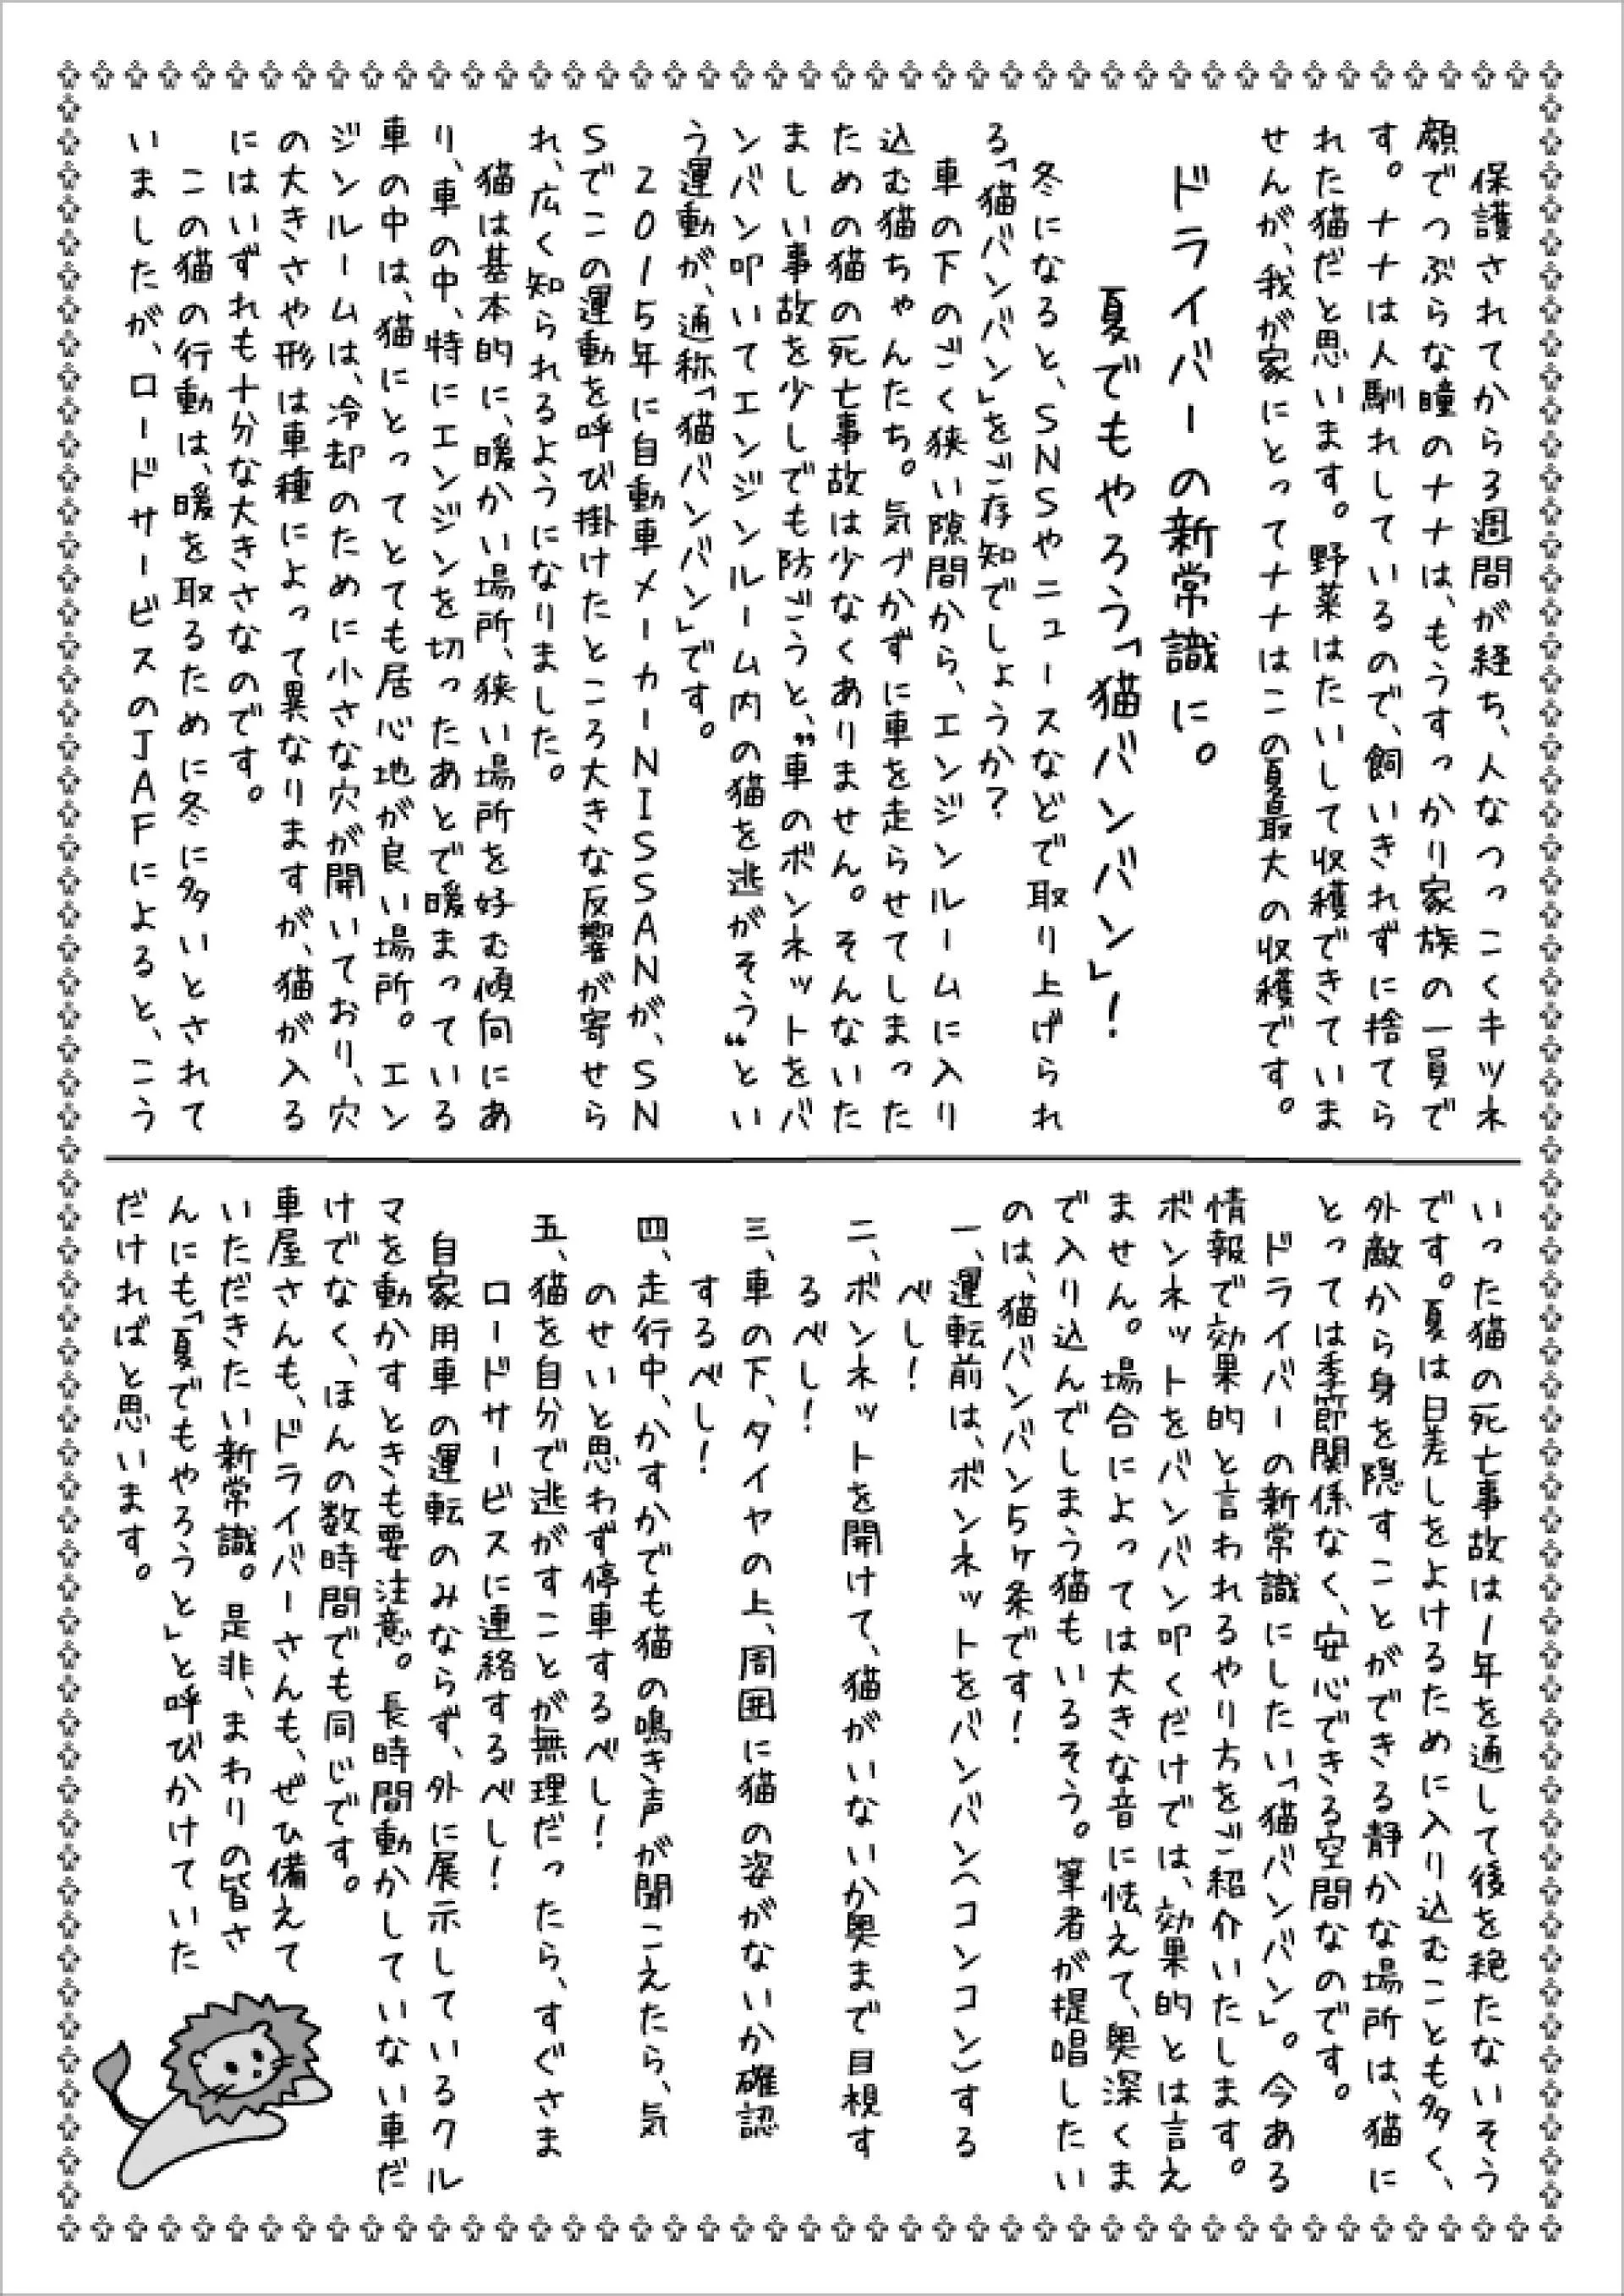 保護されてから3週間が経ち、人なつっこくキツネ
顔でつぶらな瞳のナナは、もうすっかり家族の一員で
す。ナナは人馴れしているので、飼いきれずに捨てら
れた猫だと思います。野菜はたいして収穫できていま
せんが、我が家にとってナナはこの夏最大の収穫です。
ドライバーの新常識に。
夏でもやろう「猫バンバン」!
冬になると、SNSやニュースなどで取り上げられ
る「猫バンバン」をご存知でしょうか?
車の下のごく狭い隙間から、エンジンルームに入り
込む猫ちゃんたち。気づかずに車を走らせてしまった
ための猫の死亡事故は少なくありません。そんないた
ましい事故を少しでも防ごうと、〝車のボンネットをバ
ンバン叩いてエンジンルーム内の猫を逃がそう〟とい
う運動が、通称「猫バンバン」です。
2015年に自動車メーカーNISSANが、SN
Sでこの運動を呼び掛けたところ大きな反響が寄せら
れ、広く知られるようになりました。
猫は基本的に、暖かい場所、狭い場所を好む傾向にあ
り、車の中、特にエンジンを切ったあとで暖まっている
車の中は、猫にとってとても居心地が良い場所。エン
ジンルームは、冷却のために小さな穴が開いており、穴
の大きさや形は車種によって異なりますが、猫が入る
にはいずれも十分な大きさなのです。
この猫の行動は、暖を取るために冬に多いとされて
いましたが、ロードサービスのJAFによると、こう
いった猫の死亡事故は1年を通して後を絶たないそう
です。夏は日差しをよけるために入り込むことも多く、
外敵から身を隠すことができる静かな場所は、猫に
とっては季節関係なく、安心できる空間なのです。
ドライバーの新常識にしたい「猫バンバン」。今ある
情報で効果的と言われるやり方をご紹介いたします。
ボンネットをバンバン叩くだけでは、効果的とは言え
ません。場合によっては大きな音に怯えて、奥深くま
で入り込んでしまう猫もいるそう。筆者が提唱したい
のは、猫バンバン5ヶ条です!
一、運転前は、ボンネットをバンバン(コンコン)する
べし!
二、ボンネットを開けて、猫がいないか奥まで目視す
るべし!
三、車の下、タイヤの上、周囲に猫の姿がないか確認
するべし!
四、走行中、かすかでも猫の鳴き声が聞こえたら、気
のせいと思わず停車するべし!
五、猫を自分で逃がすことが無理だったら、すぐさま
ロードサービスに連絡するべし!
自家用車の運転のみならず、外に展示しているクル
マを動かすときも要注意。長時間動かしていない車だ
けでなく、ほんの数時間でも同じです。
車屋さんも、ドライバーさんも、ぜひ備えて
いただきたい新常識。是非、まわりの皆さ
んにも「夏でもやろうと」と呼びかけていた
だければと思います。